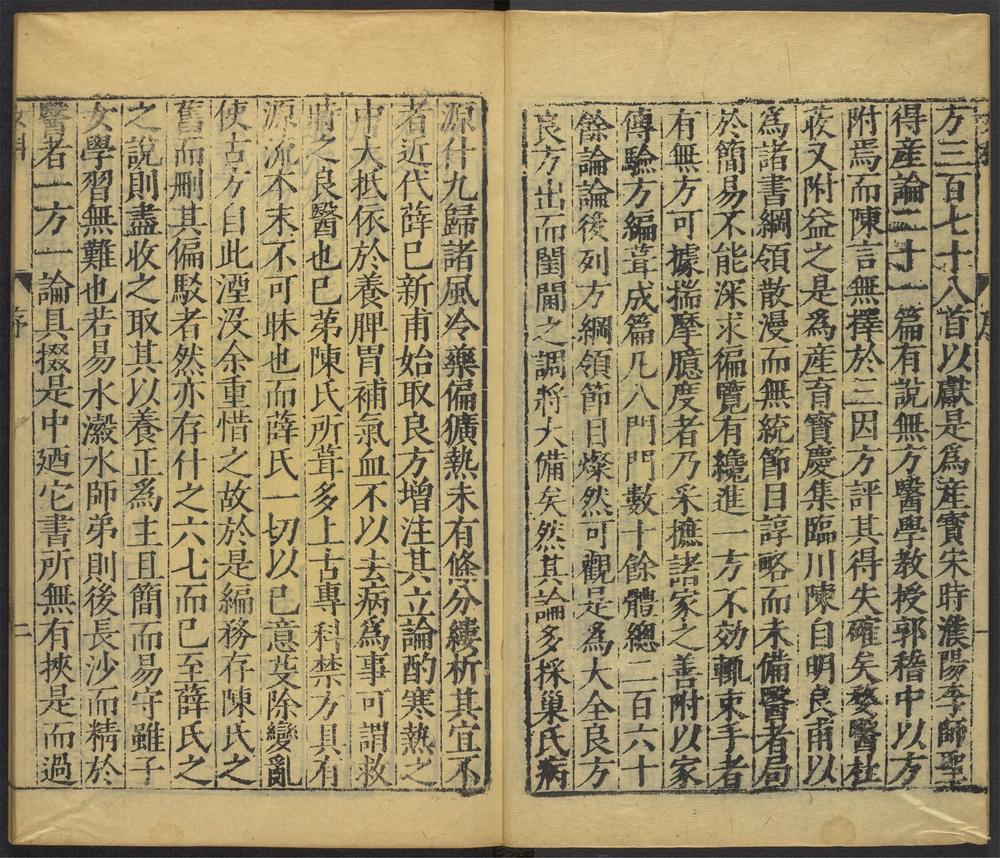 方三百七十八首以獻是爲産寶宋時濮陽李師聖
得産論二十一篇有說無方醫學教授郭稽中以方
附焉而陳言無擇於三因方評其得失確矣婺醫杜
荍又附益之是爲産育寶慶集臨川陳自明良甫以
爲諸書綱領散漫而無統節目諄略而未備醫者局
於簡易不能深求徧覽有纔進一方不効輒束手者
有無方可據揣摩臆度者乃采摭諸家之善附以家
傳驗方編葺成篇凡八門門數十餘體總二百六十
餘論論後列方綱領節目燦然可觀是爲大全良方
良方出而閨閫之調將大備矣然其論多採巢氏病
源什九歸諸風冷藥偏獷熱未有條分縷析其宜不
者近代薛已新甫始取良方增注其立論酌寒熱之
中大抵依於養脾胃補氣血不以去病爲事可謂救
時之良醫也已第陳氏所葺多上古專科禁方具有
源流本末不可昧也而薛氏一切以已意芟除變亂
使古方自此湮没余重惜之故於是編務存陳氏之
舊而刪其偏駁者然亦存什之六七而已至薛氏之
之說則盡收之取其以養正爲主且簡而易守雖子
女學習無難也若易水瀫水師弟則後長沙而精於
醫者一方一論具掇是中廼它書所無有挾是而過
序
二